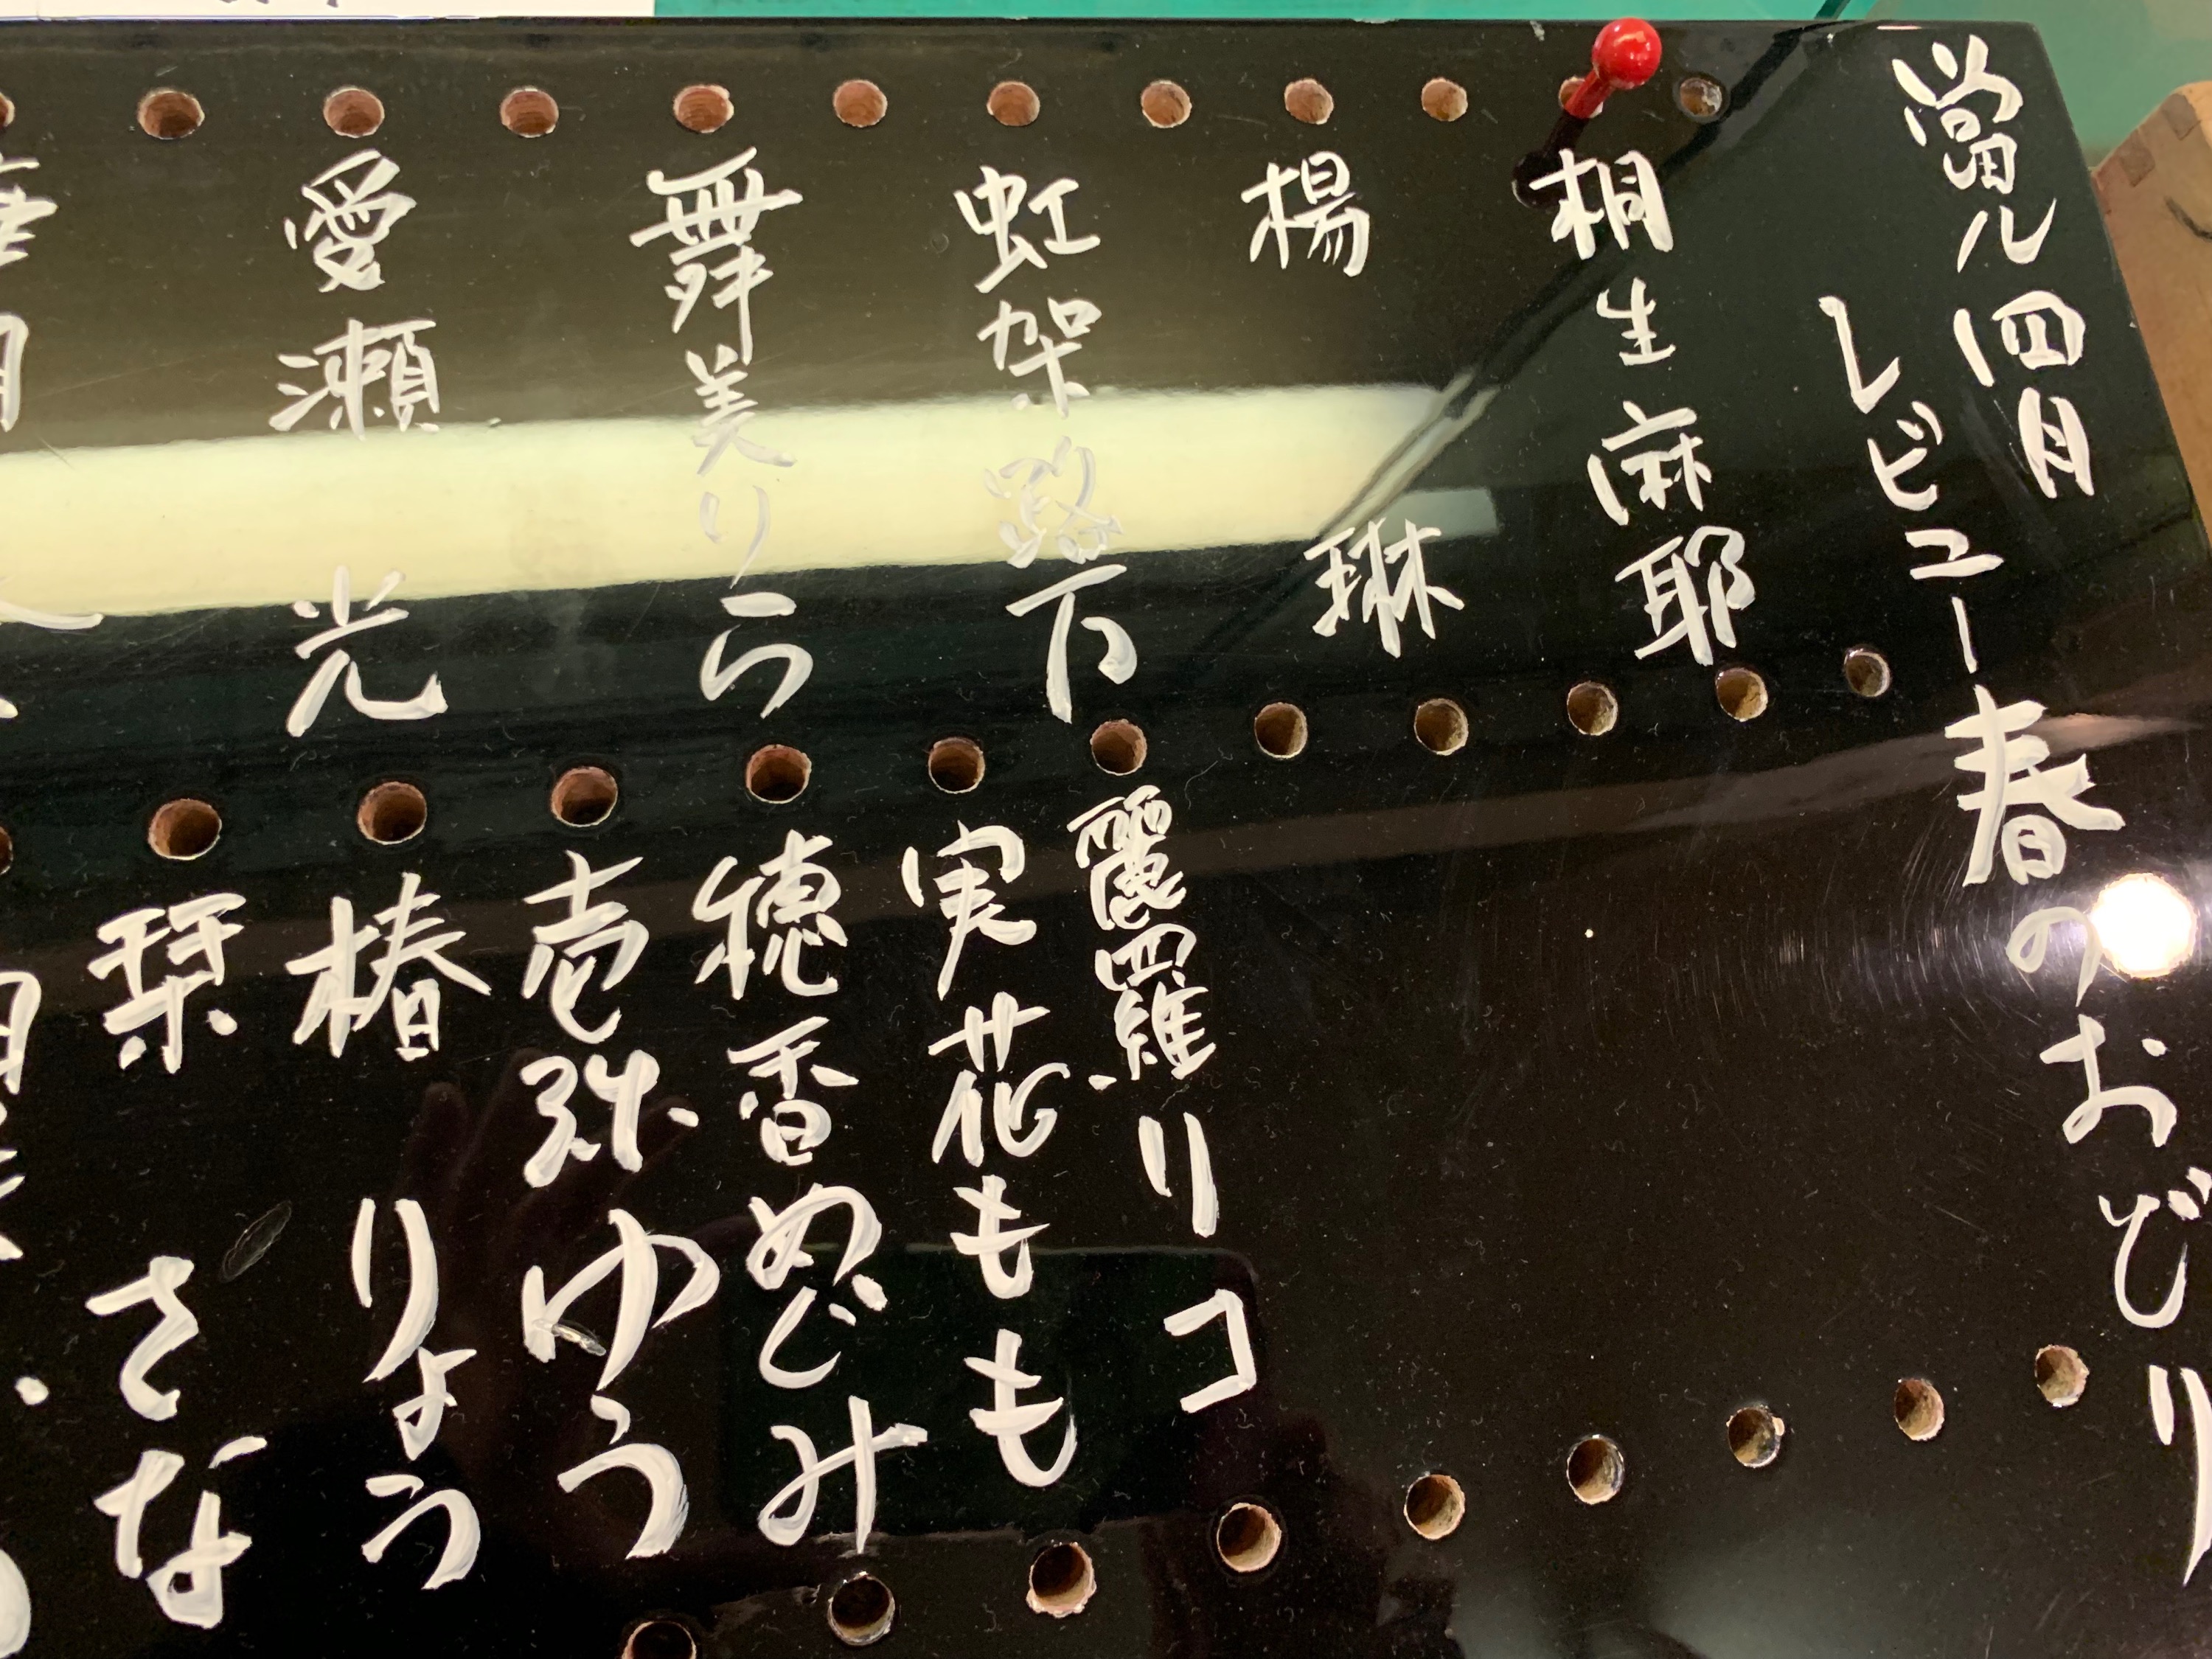 當ル四月
レビュー春のおどり
桐生麻耶
楊 琳
虹架路万
舞美りら
愛瀬 光
麗羅リコ
実花もも
穂香めぐみ
壱弥ゆう
椿 りょう
栞 さな